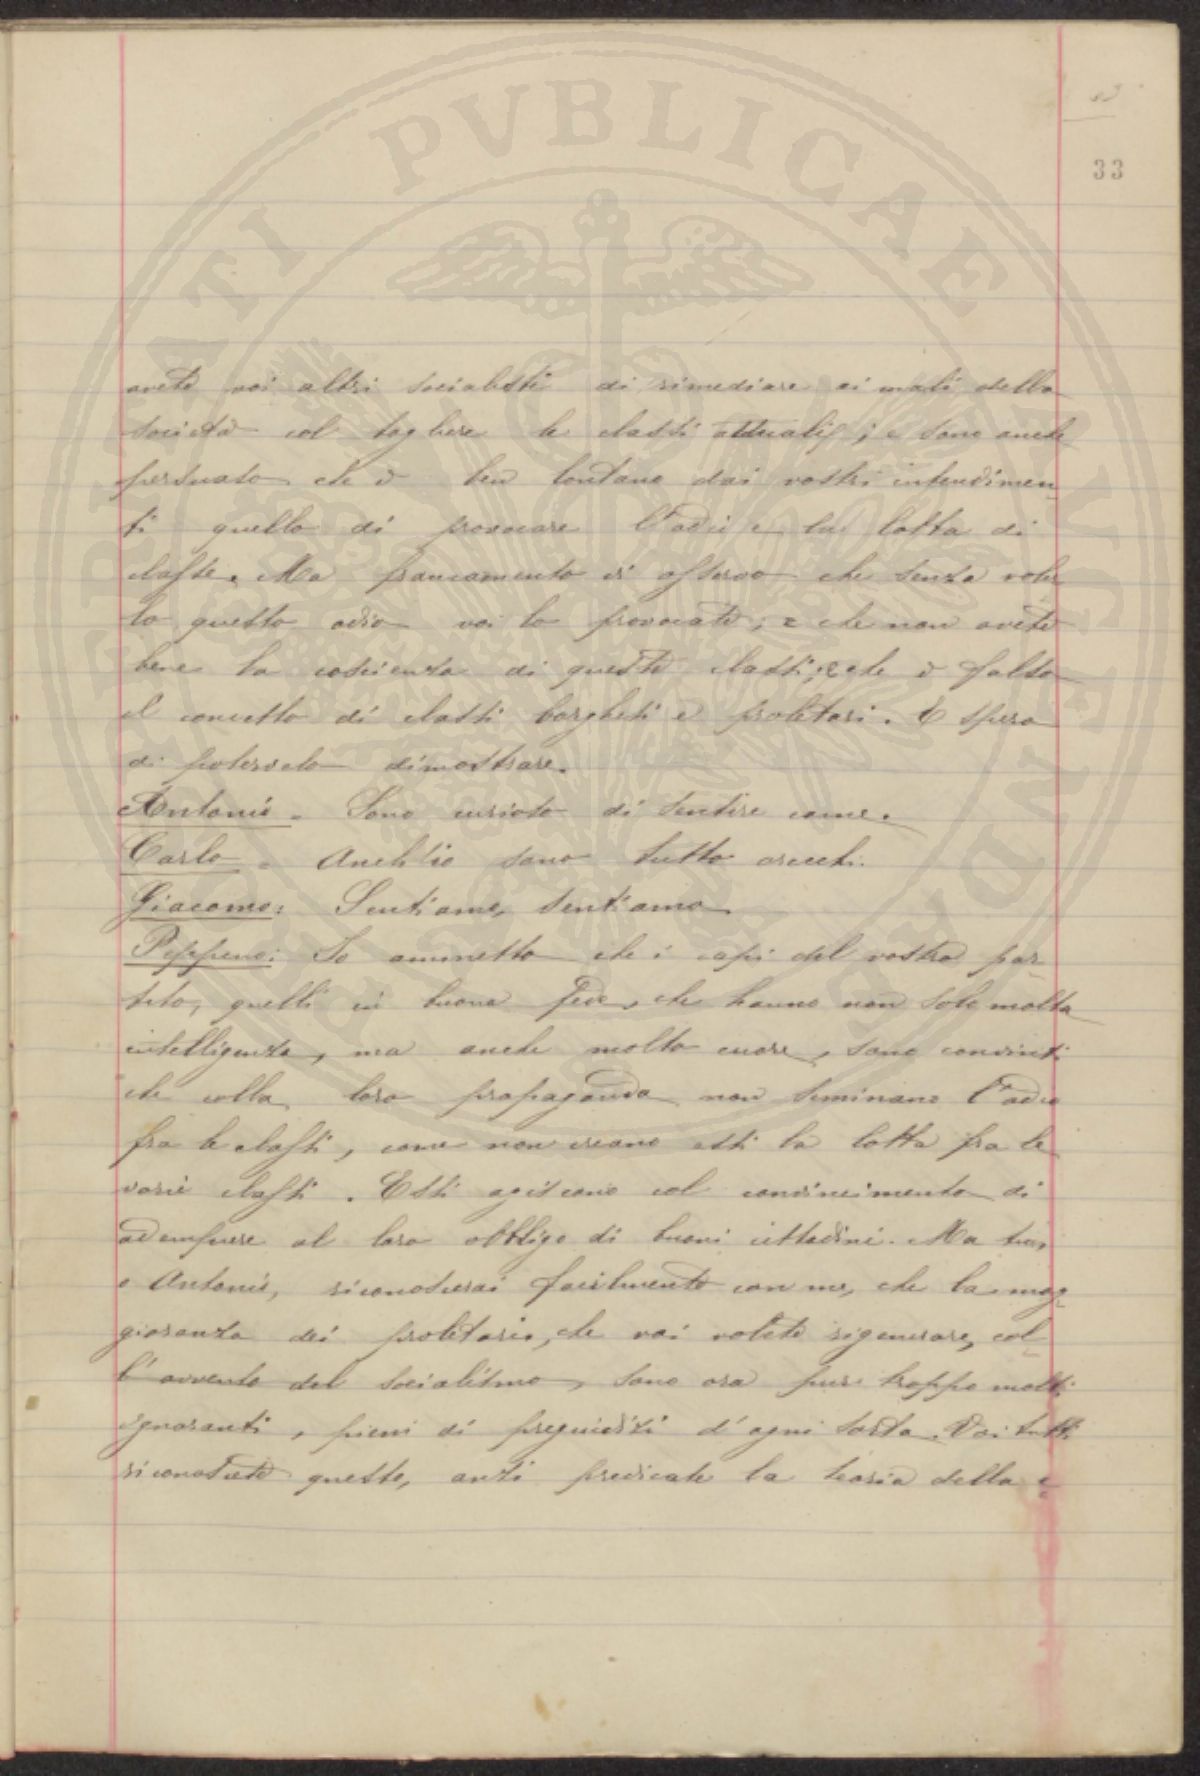 33
avete voi altri socialisti di rimediare ai mali della
società col togliere le classi attuali; e sono anche
persuaso che è ben lontano dai vostri intendimen-
ti quello di provocare l'odio e la lotta di
classe. Ma francamente vi osservo che senza voler
lo questo odio voi lo provocate, e che non avete
bene la coscienza di queste classi; e che è falso
il concetto di classi borghesi e proletari. E spero
di potervelo dimostrare.
Antonio - Sono curioso di sentire come.
Carlo - Anch'io sono tutto orecchi.
Giacomo: Sentiamo, sentiamo
Peppino: Io ammetto che i capi del vostro par-
tito, quelli in buona fede, che hanno non solo molta
intelligenza, ma anche molto cuore, sono convinti
che colla loro propaganda non seminano l'odio
fra le classi, come non creano essi la lotta fra le
varie classi. Essi agiscono col convincimento di
adempiere al loro obbligo di buoni cittadini. Ma tu,
o Antonio, riconoscerai facilmente con me, che la mag-
gioranza dei proletari, che voi volete rigenerare, col-
l'avvento del socialismo, sono ora pur troppo molti
ignoranti, pieni di pregiudizi d'ogni sorta. Voi tutti
riconoscete questo, anzi predicate la teoria della e-
PVBLICAE